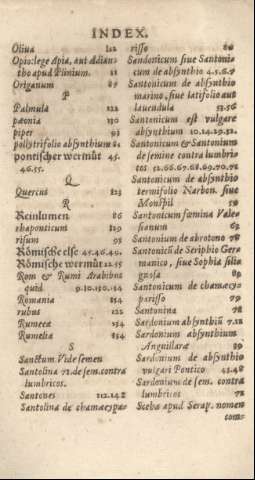 INDEX.
Oliua 112
Opio: lege Apia, aut Adian-
tho apud Plinium. 11
Origanum 89
P
Palmula 122
pæonia 130
piper 93
polystrifolio absynthium 81
pontischer wermůt 45.
46.55.
Q
Quercus 123
R
Reinlumen 86
rhaponticum 129
risum 98
Römische else 45.46.49.
Römische wermůt 12.55
Rom & Rumi Arabibus
quid 9.10.150.14
Romania 154
rubus 122
Rumeea 154
Rumelia 154
S
Sanctum. Vide semen
Santolina 72. de sem. contra
lumbricos.
Santones 112.142
Santolina de chamæcypa-
risso 80
Sandonicum siue Santoni-
cum de absynthio 4.5.6.7
Santonicum de absynthio
marino, siue latifolio aut
lauendula 53.56
Santonicum est vulgare
absynthium 10.14.29.52.
Santonicum & Santonium
de semine contra lumbri-
cos 52.66.67.68.69.70.71
Santonicum de absynthio
termifolio Narbon. siue
Monspil 59
Santonicum fœmina Vale-
sianum 62
Santonium de abrotono 78
Santonicũ de Seriphio Ger-
manico, siue Sophia sili-
quosa 89
Santonicum de chamæcy-
parisso 79
Santonina 78
Sardonium absynthiũ 7.12
Sardonium absynthium
Anguillaræ 89
Sardonium de absynthio
vulgari Pontico 43.48
Sardonium de sem. contra
lumbricos 72
Scebæ apud Serap. nomen
com-